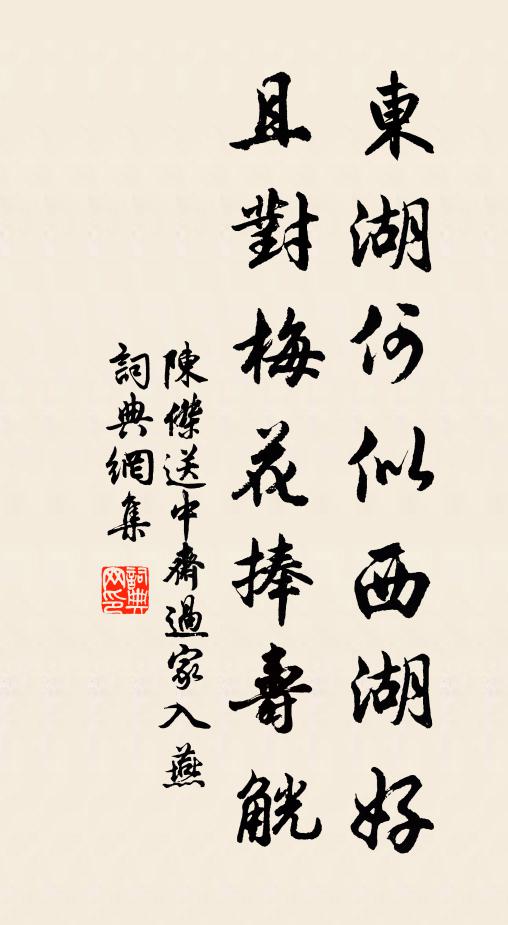 東湖何似西湖好
且對梅花捧壽觥
陳傑送中齋過家入燕
詞典網集
詞典
网印